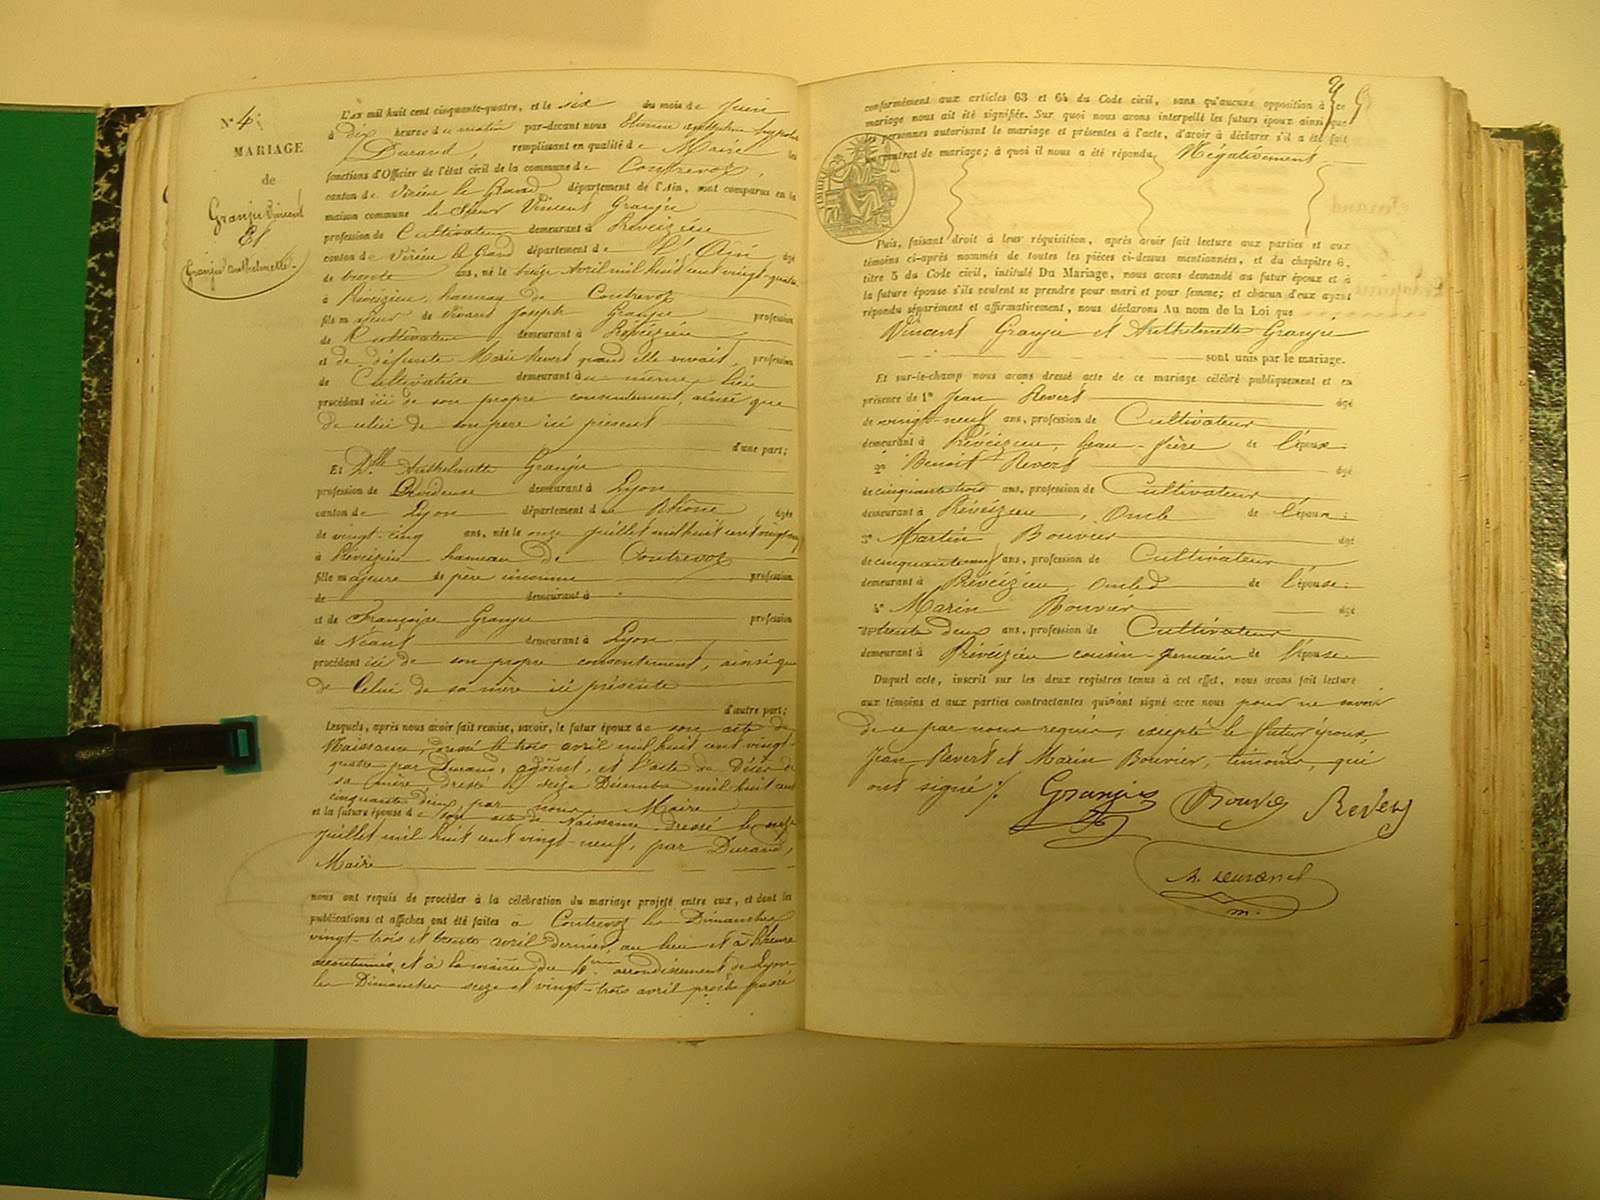 N° 4.
MARIAGE
de
Granju Vincent
Et
Granju anthelmette.
L'an mil huit cent cinquante-quatre, et le six du mois de Juin
à Dix heures du matin par-devant nous Etienne
Durand, remplissant en qualité de Maire les
fonctions d'Officier de l'état civil de la commune de Contrevoz,
canton de Virieu le Grand département de l'Ain, sont comparus en la
maison commune le Sieur Vincent Granju
profession de Cultivateur demeurant à Préveizieu
canton de Virieu le Grand département de l'Ain âgé
de trente ans, né le treize Avril mil huit cent vingt-quatre
à Préveizieu, hameau de Contrevoz
fils majeur de vivant Joseph Granju profession
de Cultivateur demeurant à Préveizieu
et de défunte Marie Revert quand elle vivait, profession
de Cultivatrice demeurant au même lieu
procédant ici de son propre consentement, ainsi que
de celui de son père ici présent
d'une part;
Et Dlle Anthelmette Granju
profession de Dévideuse demeurant à Lyon
canton de Lyon département du Rhône, âgée
de vingt-cinq ans, née le onze juillet mil huit cent vingt-neuf
à Préveizieu hameau de Contrevoz
fille majeure de père inconnu profession
de demeurant à
et de Françoise Granju profession
de Néant demeurant à Lyon
procédant ici de son propre consentement, ainsi que
de Celui de sa mère ici présente
d'autre part;
Lesquels, après nous avoir fait remise, savoir, le futur époux de son acte de
Naissance, dressé le trois avril mil huit cent vingt-
quatre par Durand, adjoint, et l'acte de Décès de
sa mère dressé le seize Décembre mil huit cent
cinquante deux par nous Maire
et la future épouse de son acte de Naissance dressé le onze
Juillet mil huit cent vingt-neuf, par Durand,
Maire
nous ont requis de procéder à la célébration du mariage projeté entre eux, et dont les
publications et affiches ont été faites à Contrevoz les Dimanches
vingt-trois et trente avril dernier, au lieu et à l'heure
accoutumés, et à la mairie du 4ème arrondissement de Lyon
les Dimanches seize et vingt-trois avril proche passé
conformément aux articles 63 et 64 du Code civil, sans qu'aucune opposition à ce
mariage nous ait été signifiée. Sur quoi nous avons interpellé les futurs époux ainsi que
les personnes autorisant le mariage et présentes à l'acte, d'avoir à déclarer s'il a été fait
un contrat de mariage; à quoi il nous a été répondu Négativement
Puis, faisant droit à leur réquisition, après avoir fait lecture aux parties et aux
témoins ci-après nommés de toutes les pièces ci-dessus mentionnées, et du chapitre 6,
titre 5 du Code civil, intitulé Du Mariage, nous avons demandé au futur époux et à
la future épouse s'ils veulent se prendre pour mari et pour femme; et chacun d'eux ayant
répondu séparément et affirmativement, nous déclarons Au nom de la Loi que
Vincent Granju et Anthelmette Granju
sont unis par le mariage.
Et sur-le-champ nous avons dressé acte de ce mariage célébré publiquement et en
présence de 1° Jean Revert âgé
de vingt-neuf ans, profession de Cultivateur
demeurant à Préveizieu, beau-frère de l'époux;
2° Benoit Revert âgé
de cinquante trois ans, profession de Cultivateur
demeurant à Préveizieu, Oncle de l'époux;
3° Martin Bouvier âgé
de cinquante neuf ans, profession de Cultivateur
demeurant à Préveizieu, Oncle de l'épouse;
4° Marin Bouvier âgé
de trente deux ans, profession de Cultivateur
demeurant à Préveizieu cousin-germain de l'épouse
Duquel acte, inscrit sur les deux registres tenus à cet effet, nous avons fait lecture
aux témoins et aux parties contractantes qui n'ont signé avec nous pour ne savoir
de ce par nous requis, excepté le futur époux,
Jean Revert et Marin Bouvier, témoins, qui
ont signé ./.
Granju Bouvier Revert
Durand
m.